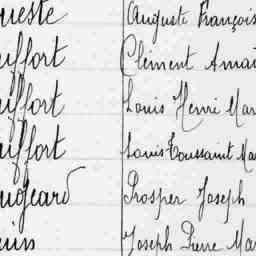 ueste Auguste François
uffort Clément Ama
uffort Louis Henri Mar
uffort Louis Toussaint Ma
ugeard Prosper Joseph
uin Joseph Pierre Ma